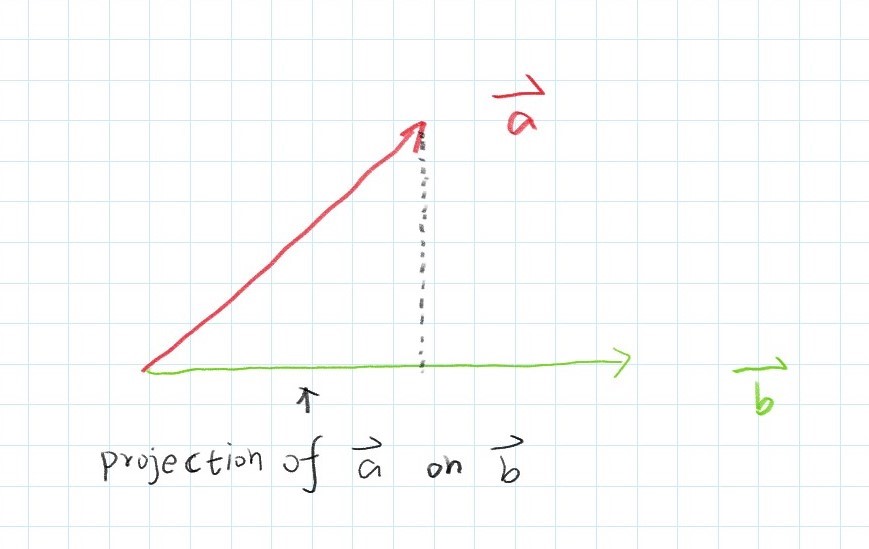 a
b
projection of a on b